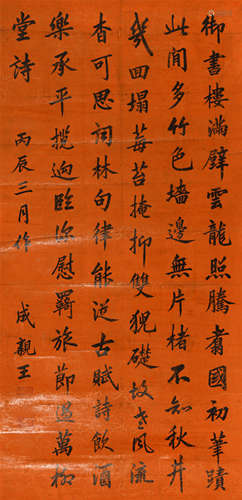 御書樓滿壁雲龍照騰翥國初筆蹟
此間多竹色墻邊無片楮不知秋井
幾回塌莓苔掩抑雙猊礎故老風流
杳可思詞林句律能追古賦詩飲酒
樂承平攬迹臨
慰羇旅節過萬柳
堂詩 丙辰三月作 成親王